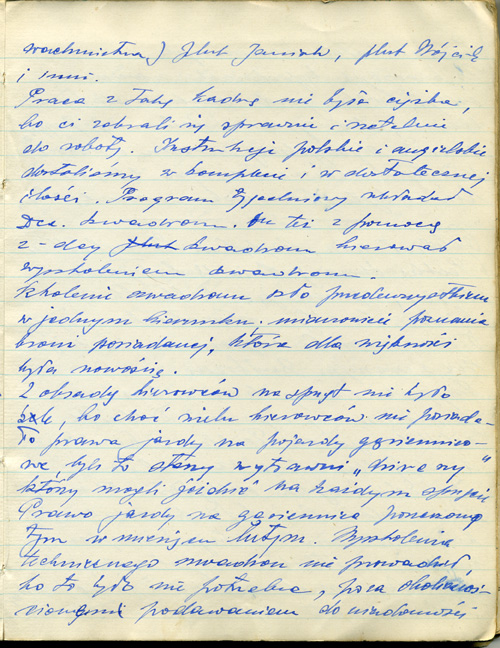 wachmistrza) plut Janiak, plut Wójcik
i inni.
Praca z taką kadrą nie była ciężka,
bo ci zabrali się sprawnie i rzetelnie
do roboty. Instrukcje polskie i angielskie
dostaliśmy w komplecie i w dostatecznej
ilości. Program tygodniowy układał
Dca. szwadronu. On też z pomocą
z-cy szwadronu kierował
wyszkoleniem szwadronu.
Szkolenie szwadronu szło przedewszystkiem
w jednym kierunku, mianowicie poznania
broni posiadanej, która dla większości
była nowością.
Z obsadą kierowców na sprzęt nie było
źle, bo choć wielu kierowców nie posiada-
ło prawa jazdy na pojazdy gąsiennico-
we, byli to starzy wytrawni
który mogli jeździć na każdym sprzęcie
Prawo jazdy na gąsiennice
tym w miesiącu lutym. Wyszkolenia
technicznego szwadron nie prowadził
bo to było nie potrzebne, poza okolicznoś-
ciowymi podawaniem do wiadomości